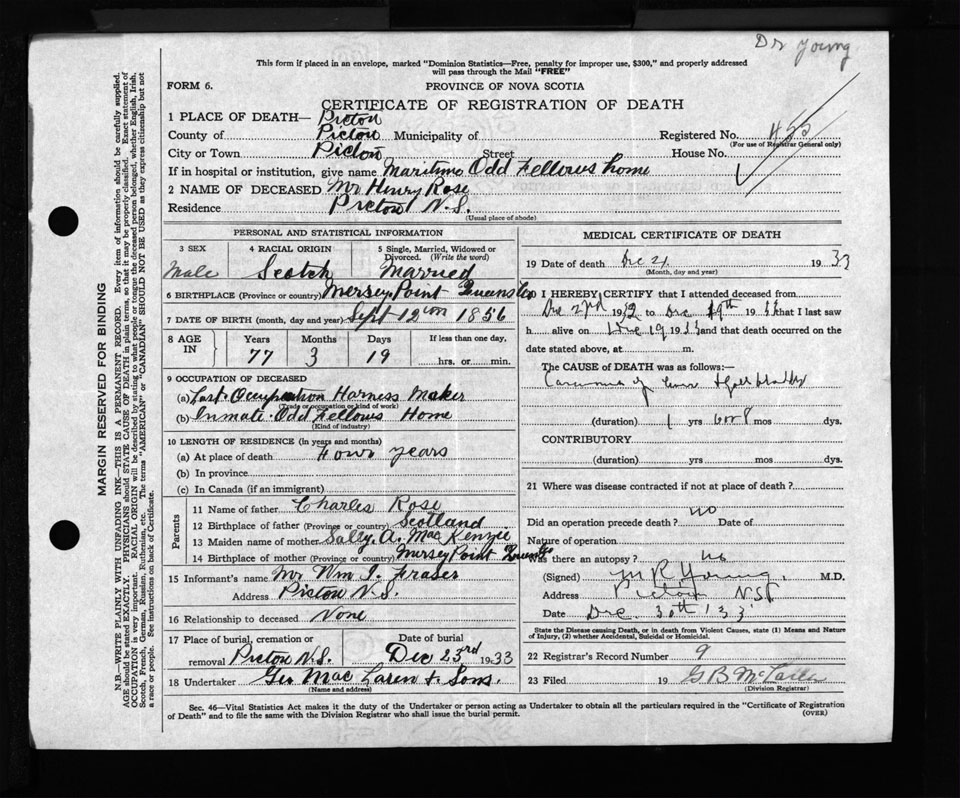 Dr Young
This form if placed in an envelope, marked "Dominion Statistics—Free, penalty for improper use, $300," and properly addressed
will pass through the Mail "FREE"
FORM 6.
PROVINCE OF NOVA SCOTIA
CERTIFICATE OF REGISTRATION OF DEATH
1 PLACE OF DEATH— Pictou
County of Pictou Municipality of Registered No.
(For use of Registrar General only)
City or Town Pictou Street House No.
If in hospital or institution, give name Maritime Odd Fellows Home
2 NAME OF DECEASED Mr Henry Rose
Residence Pictou N.S.
(Usual place of abode)
MARGIN RESERVED FOR BINDING
N.B.—WRITE PLAINLY WITH UNFADING INK—THIS IS A PERMANENT RECORD. Every item of information should be carefully supplied.
AGE should be stated EXACTLY. PHYSICIANS should STATE CAUSE OF DEATH in plain terms, so that it may be properly classified. Exact statement of
OCCUPATION is very important. RACIAL ORIGIN will be described by stating to what people or tongue the deceased person belonged, whether English, Irish,
Scotch, French, German, Russian, Ruthenian, etc. The terms "AMERICAN" or "CANADIAN" SHOULD NOT BE USED as they express citizenship but not
a race or people. See instructions on back of Certificate.
PERSONAL AND STATISTICAL INFORMATION
3 SEX 4 RACIAL ORIGIN 5 Single, Married, Widowed or
Divorced. (Write the word)
Male Scotch Married
6 BIRTHPLACE (Province or country) Mersey Point Queens Co
7 DATE OF BIRTH (month, day and year) Sept 12 1856
8 AGE IN Years Months Days If less than one day,
77 3 19 hrs. or min.
9 OCCUPATION OF DECEASED
(a) Last Occupation Harness Maker
(Trade or occupation or kind of work)
(b) Inmate Odd Fellows Home
(Kind of industry)
10 LENGTH OF RESIDENCE (in years and months)
(a) At place of death Four years
(b) In province
(c) In Canada (if an immigrant)
Parents
11 Name of father Charles Rose
12 Birthplace of father (Province or country) Scotland
13 Maiden name of mother Sally A. MacKenzie
14 Birthplace of mother (Province or country) Mersey Point Queens Co
15 Informant's name Mr Wm J. Fraser
Address Pictou N.S.
16 Relationship to deceased None
17 Place of burial, cremation or Date of burial
removal Pictou N.S. Dec 23rd 1933
18 Undertaker Geo MacLaren & Sons.
(Name and address)
MEDICAL CERTIFICATE OF DEATH
19 Date of death Dec 21 1933
(Month, day and year)
20 I HEREBY CERTIFY that I attended deceased from
Dec 2nd 1932 to Dec 19th 1933 that I last saw
h alive on Dec 19 1933 and that death occurred on the
date stated above, at m.
The CAUSE OF DEATH was as follows:—
Carcinoma of Liver & Gall bladder
(duration) 1 yrs 6 or 8 mos dys.
CONTRIBUTORY
(duration) yrs mos dys.
21 Where was disease contracted if not at place of death?
Did an operation precede death? no Date of
Nature of operation
Was there an autopsy? no
(Signed) M R Young. M.D.
Address Pictou NS
Date Dec. 30th '33
State the Disease causing Death, or in death from Violent Causes, state (1) Means and Nature
of Injury, (2) whether Accidental, Suicidal or Homicidal.
22 Registrar's Record Number 9
23 Filed 19 G B McLaren
(Division Registrar)
Sec. 46—Vital Statistics Act makes it the duty of the Undertaker or person acting as Undertaker to obtain all the particulars required in the "Certificate of Registration
of Death" and to file the same with the Division Registrar who shall issue the burial permit.
(OVER)